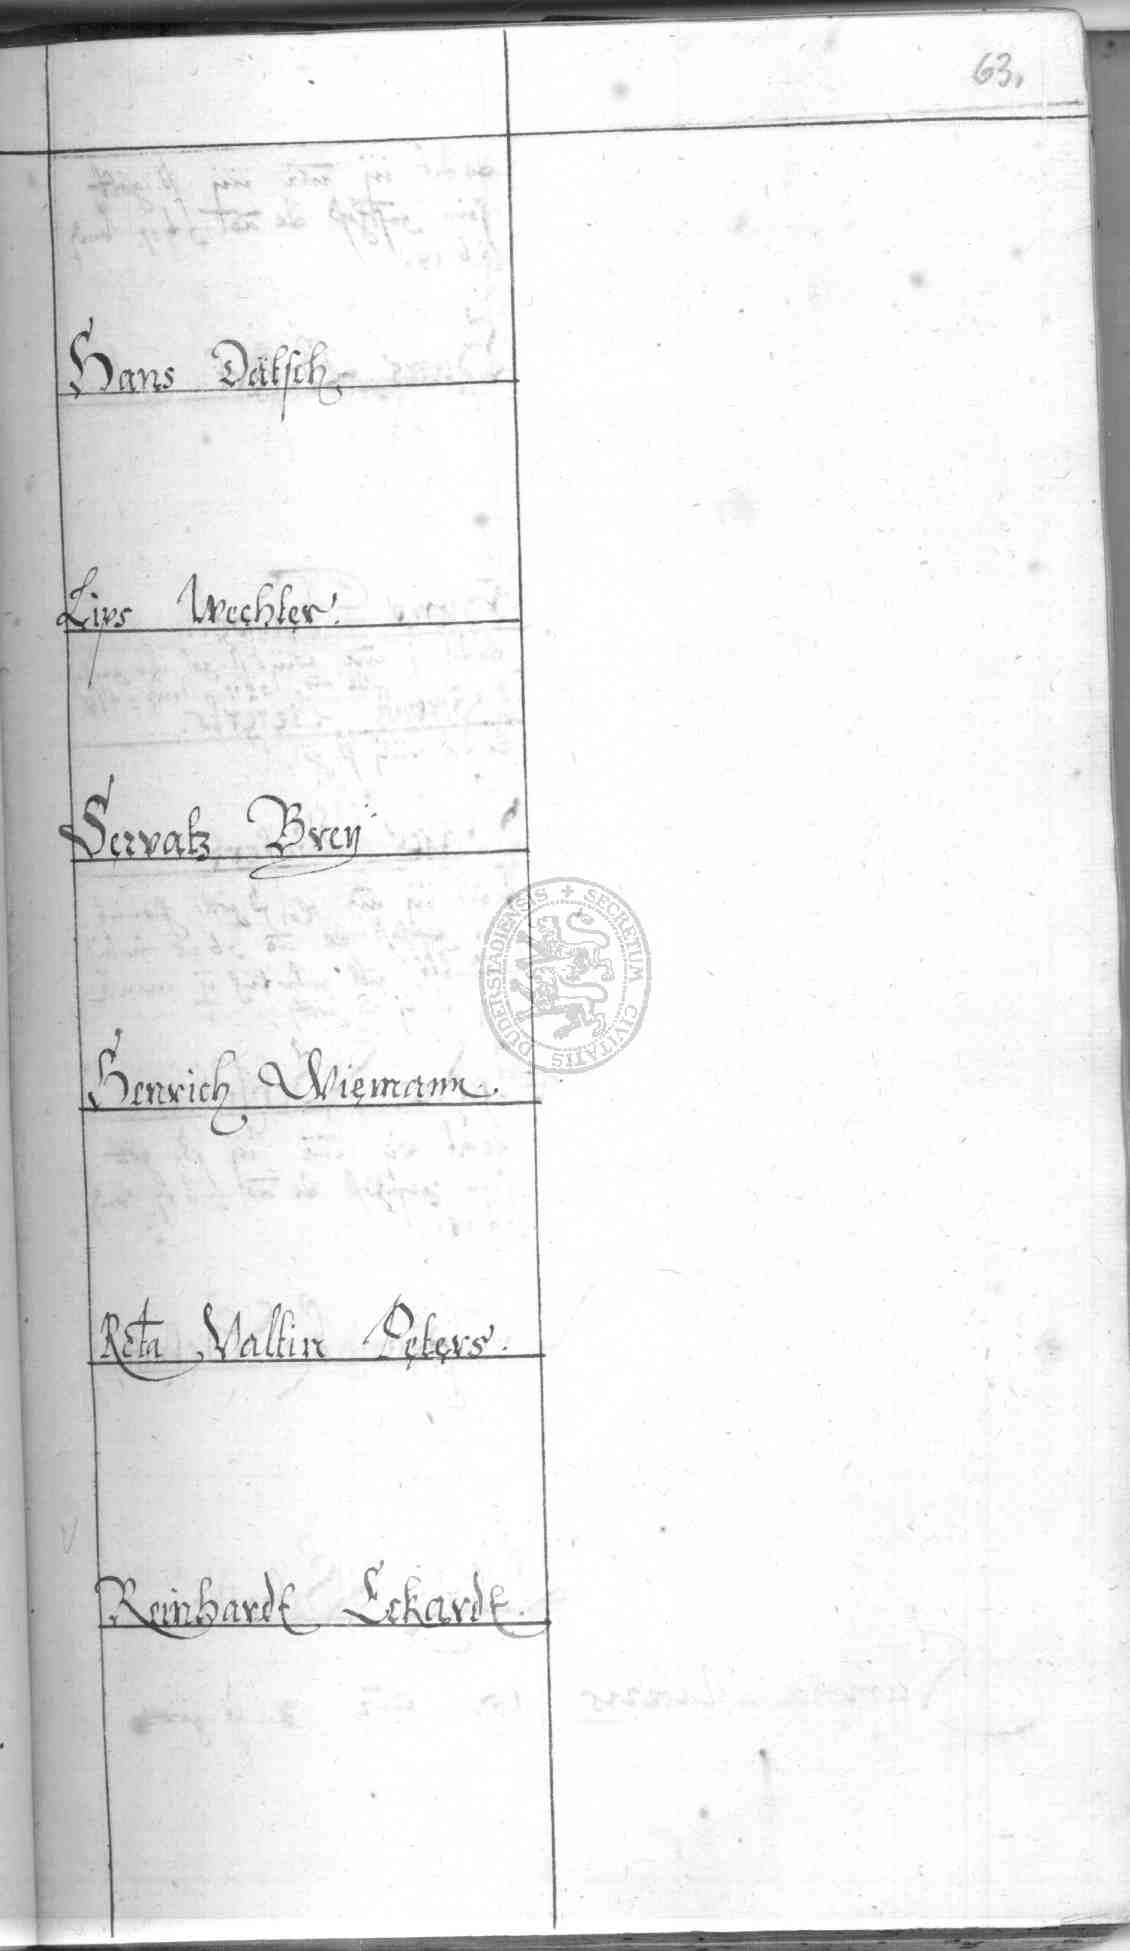 63.
Hans Dätsch.
Lips Wechler.
Servatz Breÿ
Henrich Wiemann.
Reta Valtin Peters.
Reinhardt Eckardt.
SECRETUM CIVITATIS DUDERSTADIENSIS